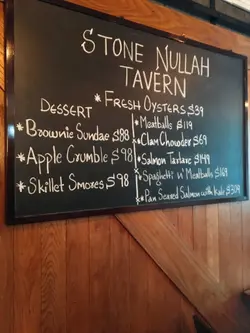 STONE NULLAH
TAVERN
* FRESH OYSTERS $39
DESSERT
* Brownie Sundae $88
* Apple Crumble $98
* Skillet Smores $98
* Meatballs $119
* Clam Chowder $69
* Salmon Tartare $149
* Spaghetti n' Meatballs $169
* Pan Seared Salmon with Kale